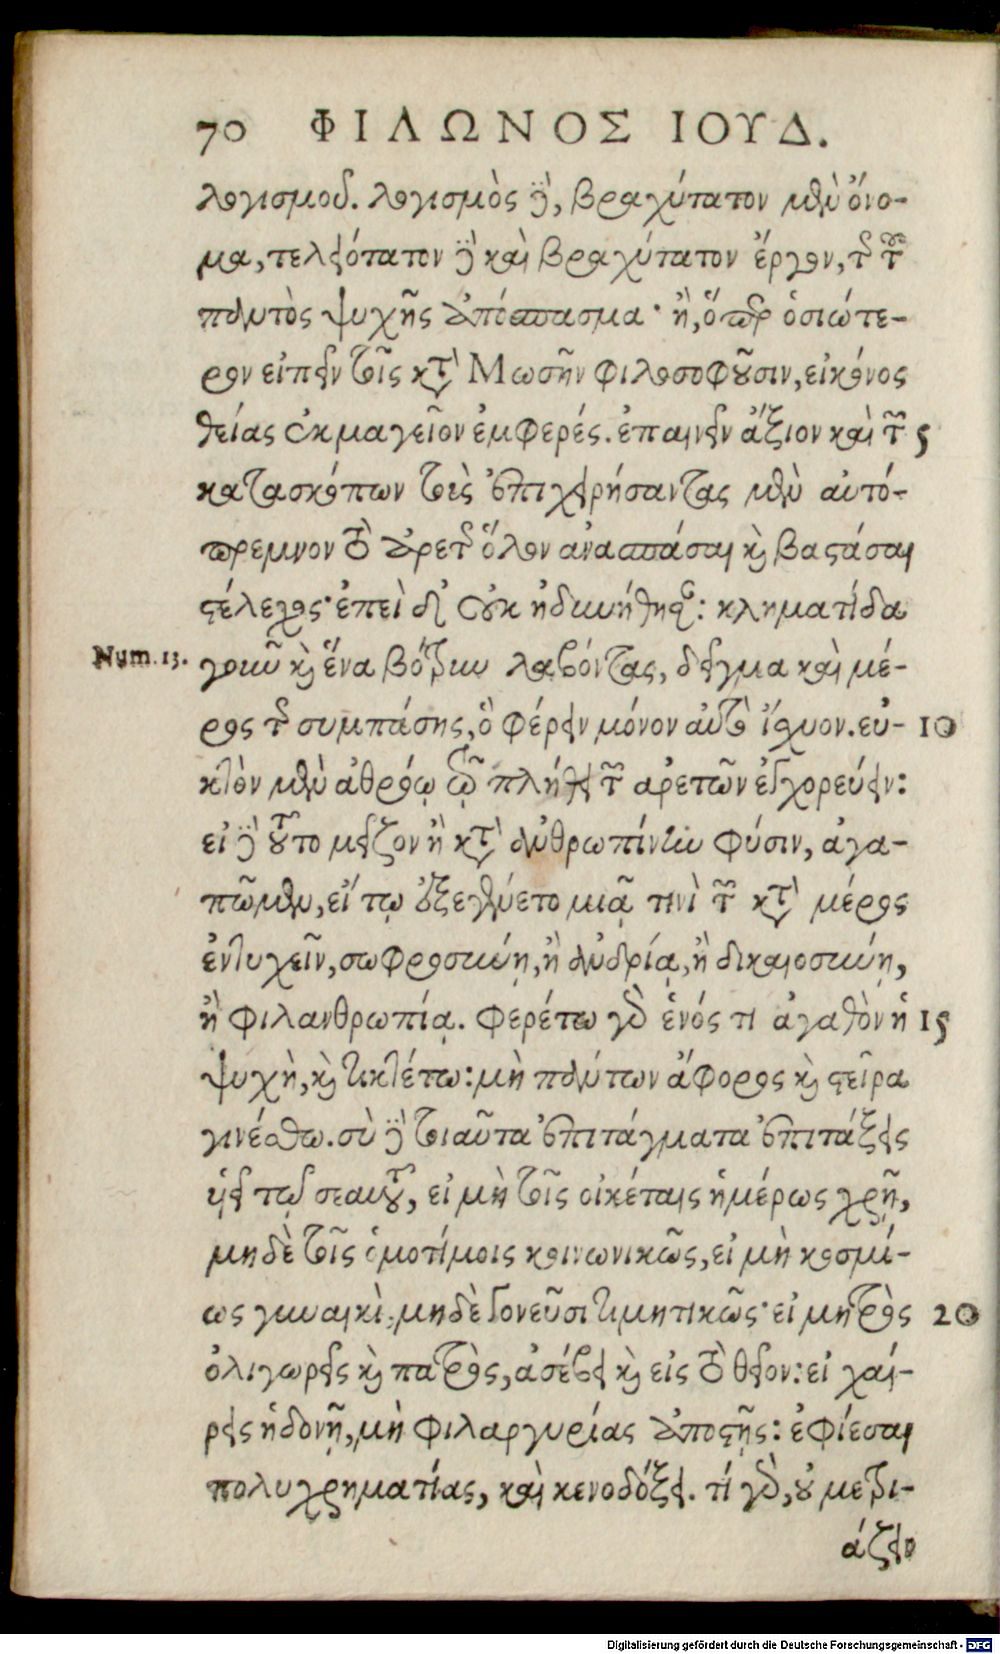 70 ΦΙΛΩΝΟΣ ΙΟΥΔ.
λογισμοῦ. λογισμὸς δὲ, βραχύτατον μὲν ὄνο-
μα, τελειότατον δὲ καὶ βραχύτατον ἔργον, τῆς τοῦ
παντὸς ψυχῆς ἀπόσπασμα· ἢ, ὅπερ ὁσιώτε-
ρον εἰπεῖν τοῖς κατὰ Μωσῆν φιλοσοφοῦσιν, εἰκόνος
θείας ἐκμαγεῖον ἐμφερές. ἐπαινεῖν ἄξιον καὶ τῶν 5
κατασκόπων τοὺς ἐπιχειρήσαντας μὲν αὐτό-
πρεμνον τὸ ἀρετῆς ὅλον ἀνασπάσαι καὶ βαστάσαι
στέλεχος· ἐπεὶ δὲ οὐκ ἠδυνήθησαν: κληματίδα
Num. 13. γοῦν καὶ ἕνα βότρυν λαβόντας, δεῖγμα καὶ μέ-
ρος τῆς συμπάσης, ὃ φέρειν μόνον αὐτὸ ἴσχυον. εὐ- 10
κτὸν μὲν ἀθρόῳ τῷ πλήθει τῶν αρετῶν ἐγχορεύειν:
εἰ δὲ τοῦτο μεῖζον ἢ κατὰ ἀνθρωπίνην φύσιν, ἀγα-
πῶμεν, εἴ τῳ ἐξεγένετο μιᾷ τινὶ τῶν κατὰ μέρος
ἐντυχεῖν, σωφροσύνῃ, ἢ ἀνδρίᾳ, ἢ δικαιοσύνῃ,
ἢ φιλανθρωπίᾳ. φερέτω γὰρ ἑνός τι ἀγαθὸν ἡ 15
ψυχὴ, καὶ τικτέτω: μὴ πάντων ἄφορος καὶ στεῖρα
γινέσθω. σὺ δὲ τοιαῦτα ἐπιτάγματα ἐπιτάξεις
υἱεῖ τῷ σεαυτοῦ, εἰ μὴ τοῖς οἰκέταις ἡμέρως χρῇ,
μηδὲ τοῖς ὁμοτίμοις κοινωνικῶς, εἰ μὴ κοσμί-
ως γυναικὶ, μηδὲ γονεῦσι τιμητικῶς· εἰ μητρὸς 20
ὀλιγωρεῖς καὶ πατρὸς, ἀσέβει καὶ εἰς τὸ θεῖον: εἰ χαί-
ρεις ἡδονῇ, μὴ φιλαργυρίας ἀποστῇς: ἐφίεσαι
πολυχρηματίας, καὶ κενοδόξει. τί γὰρ, οὐ μετρι-
άζειν
Digitalisierung gefördert durch die Deutsche Forschungsgemeinschaft - DFG